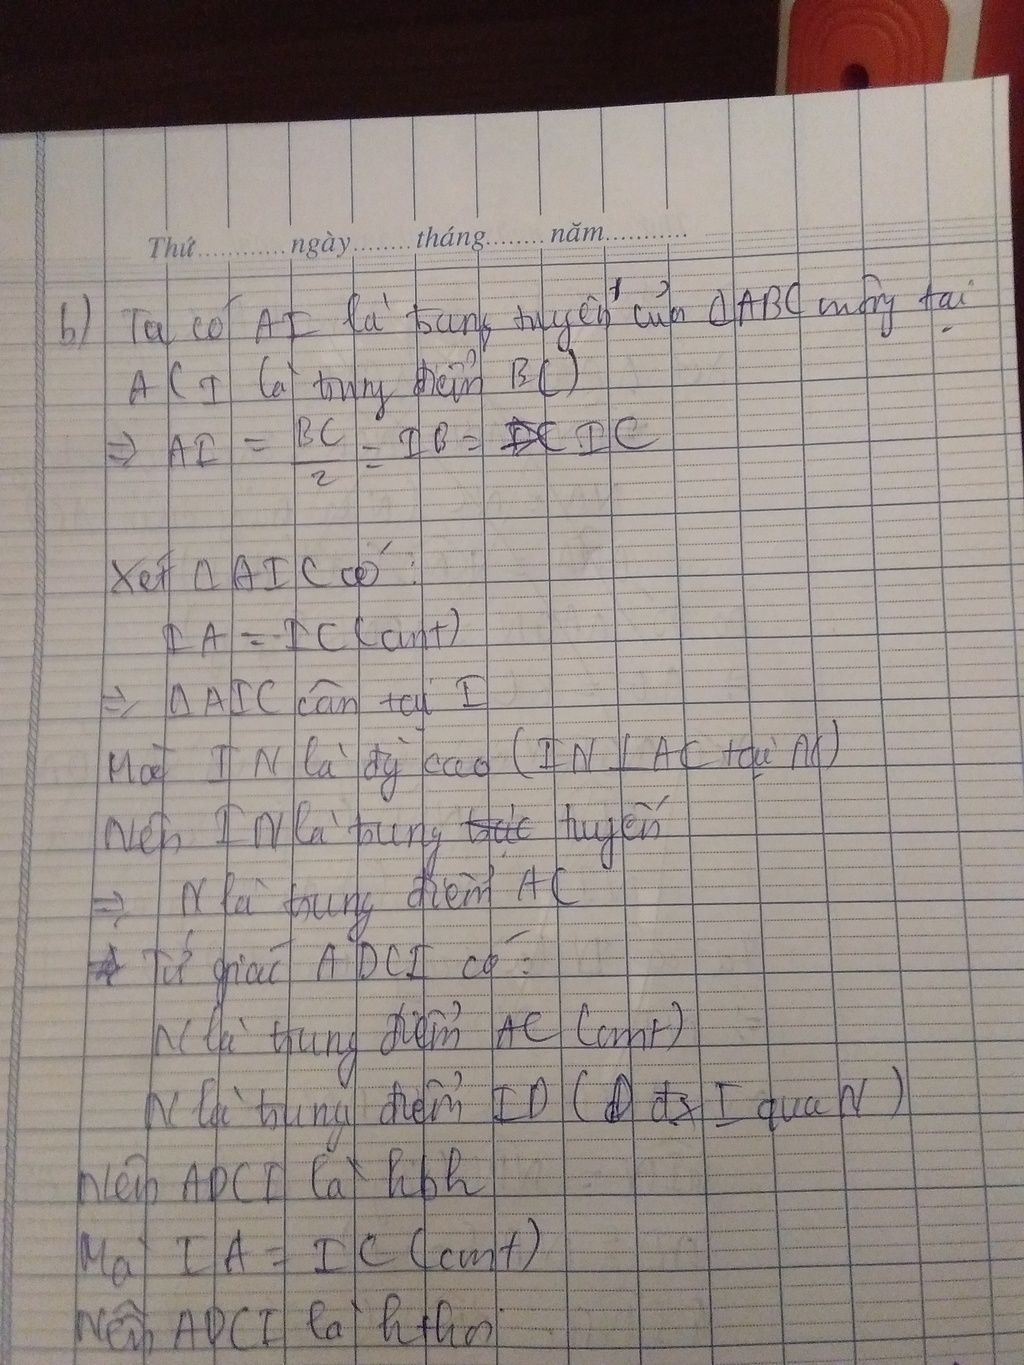 Thứ............ngày........tháng........năm...........
b) Ta có AI là trung tuyến của ΔABC vuông tại
A (I là trung điểm BC)
⇒ AI = BC/2 = IB = IC
Xét ΔAIC có:
IA = IC (cmt)
⇒ ΔAIC cân tại I
Mà IN là đg cao (IN ⊥ AC tại N)
Nên IN là trung tuyến
⇒ N là trung điểm AC
Tứ giác ADCI có:
N là trung điểm AC (cmt)
N là trung điểm ID (D đx I qua N)
Nên ADCI là hbh
Mà IA = IC (cmt)
Nên ADCI là hthoi